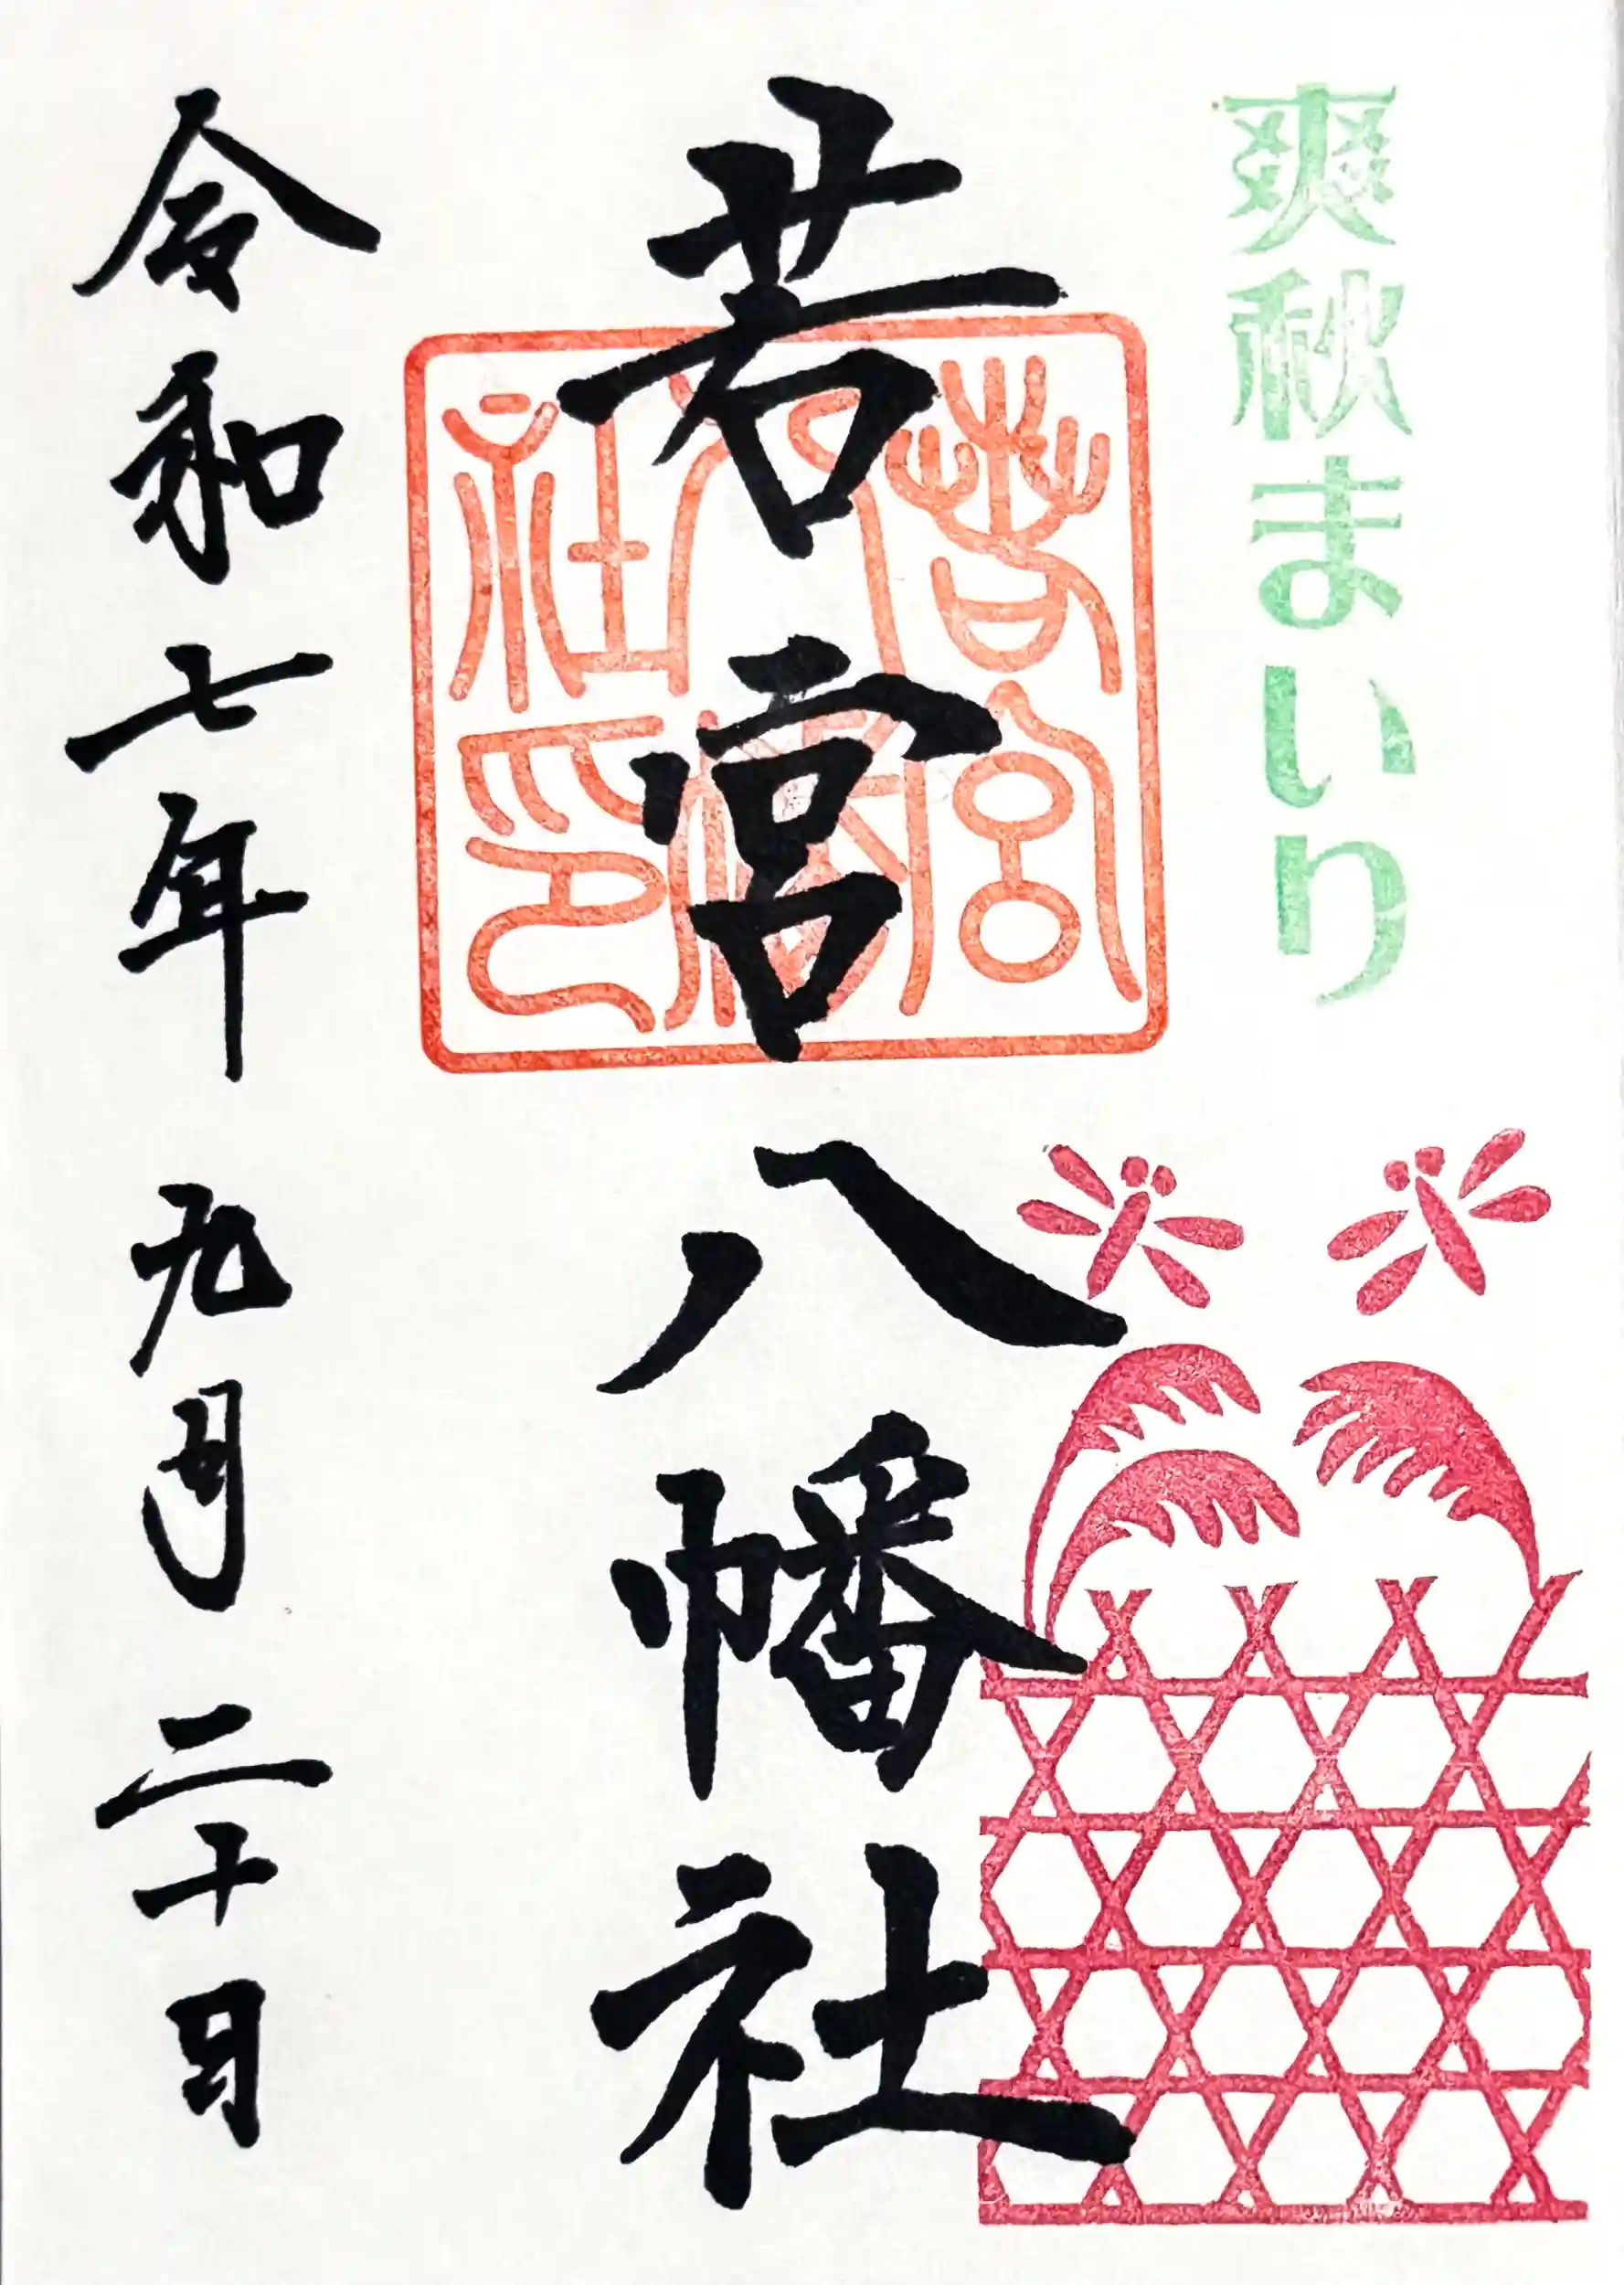 爽秋まいり
若宮八幡社
若宮八幡社印
令和七年九月二十日